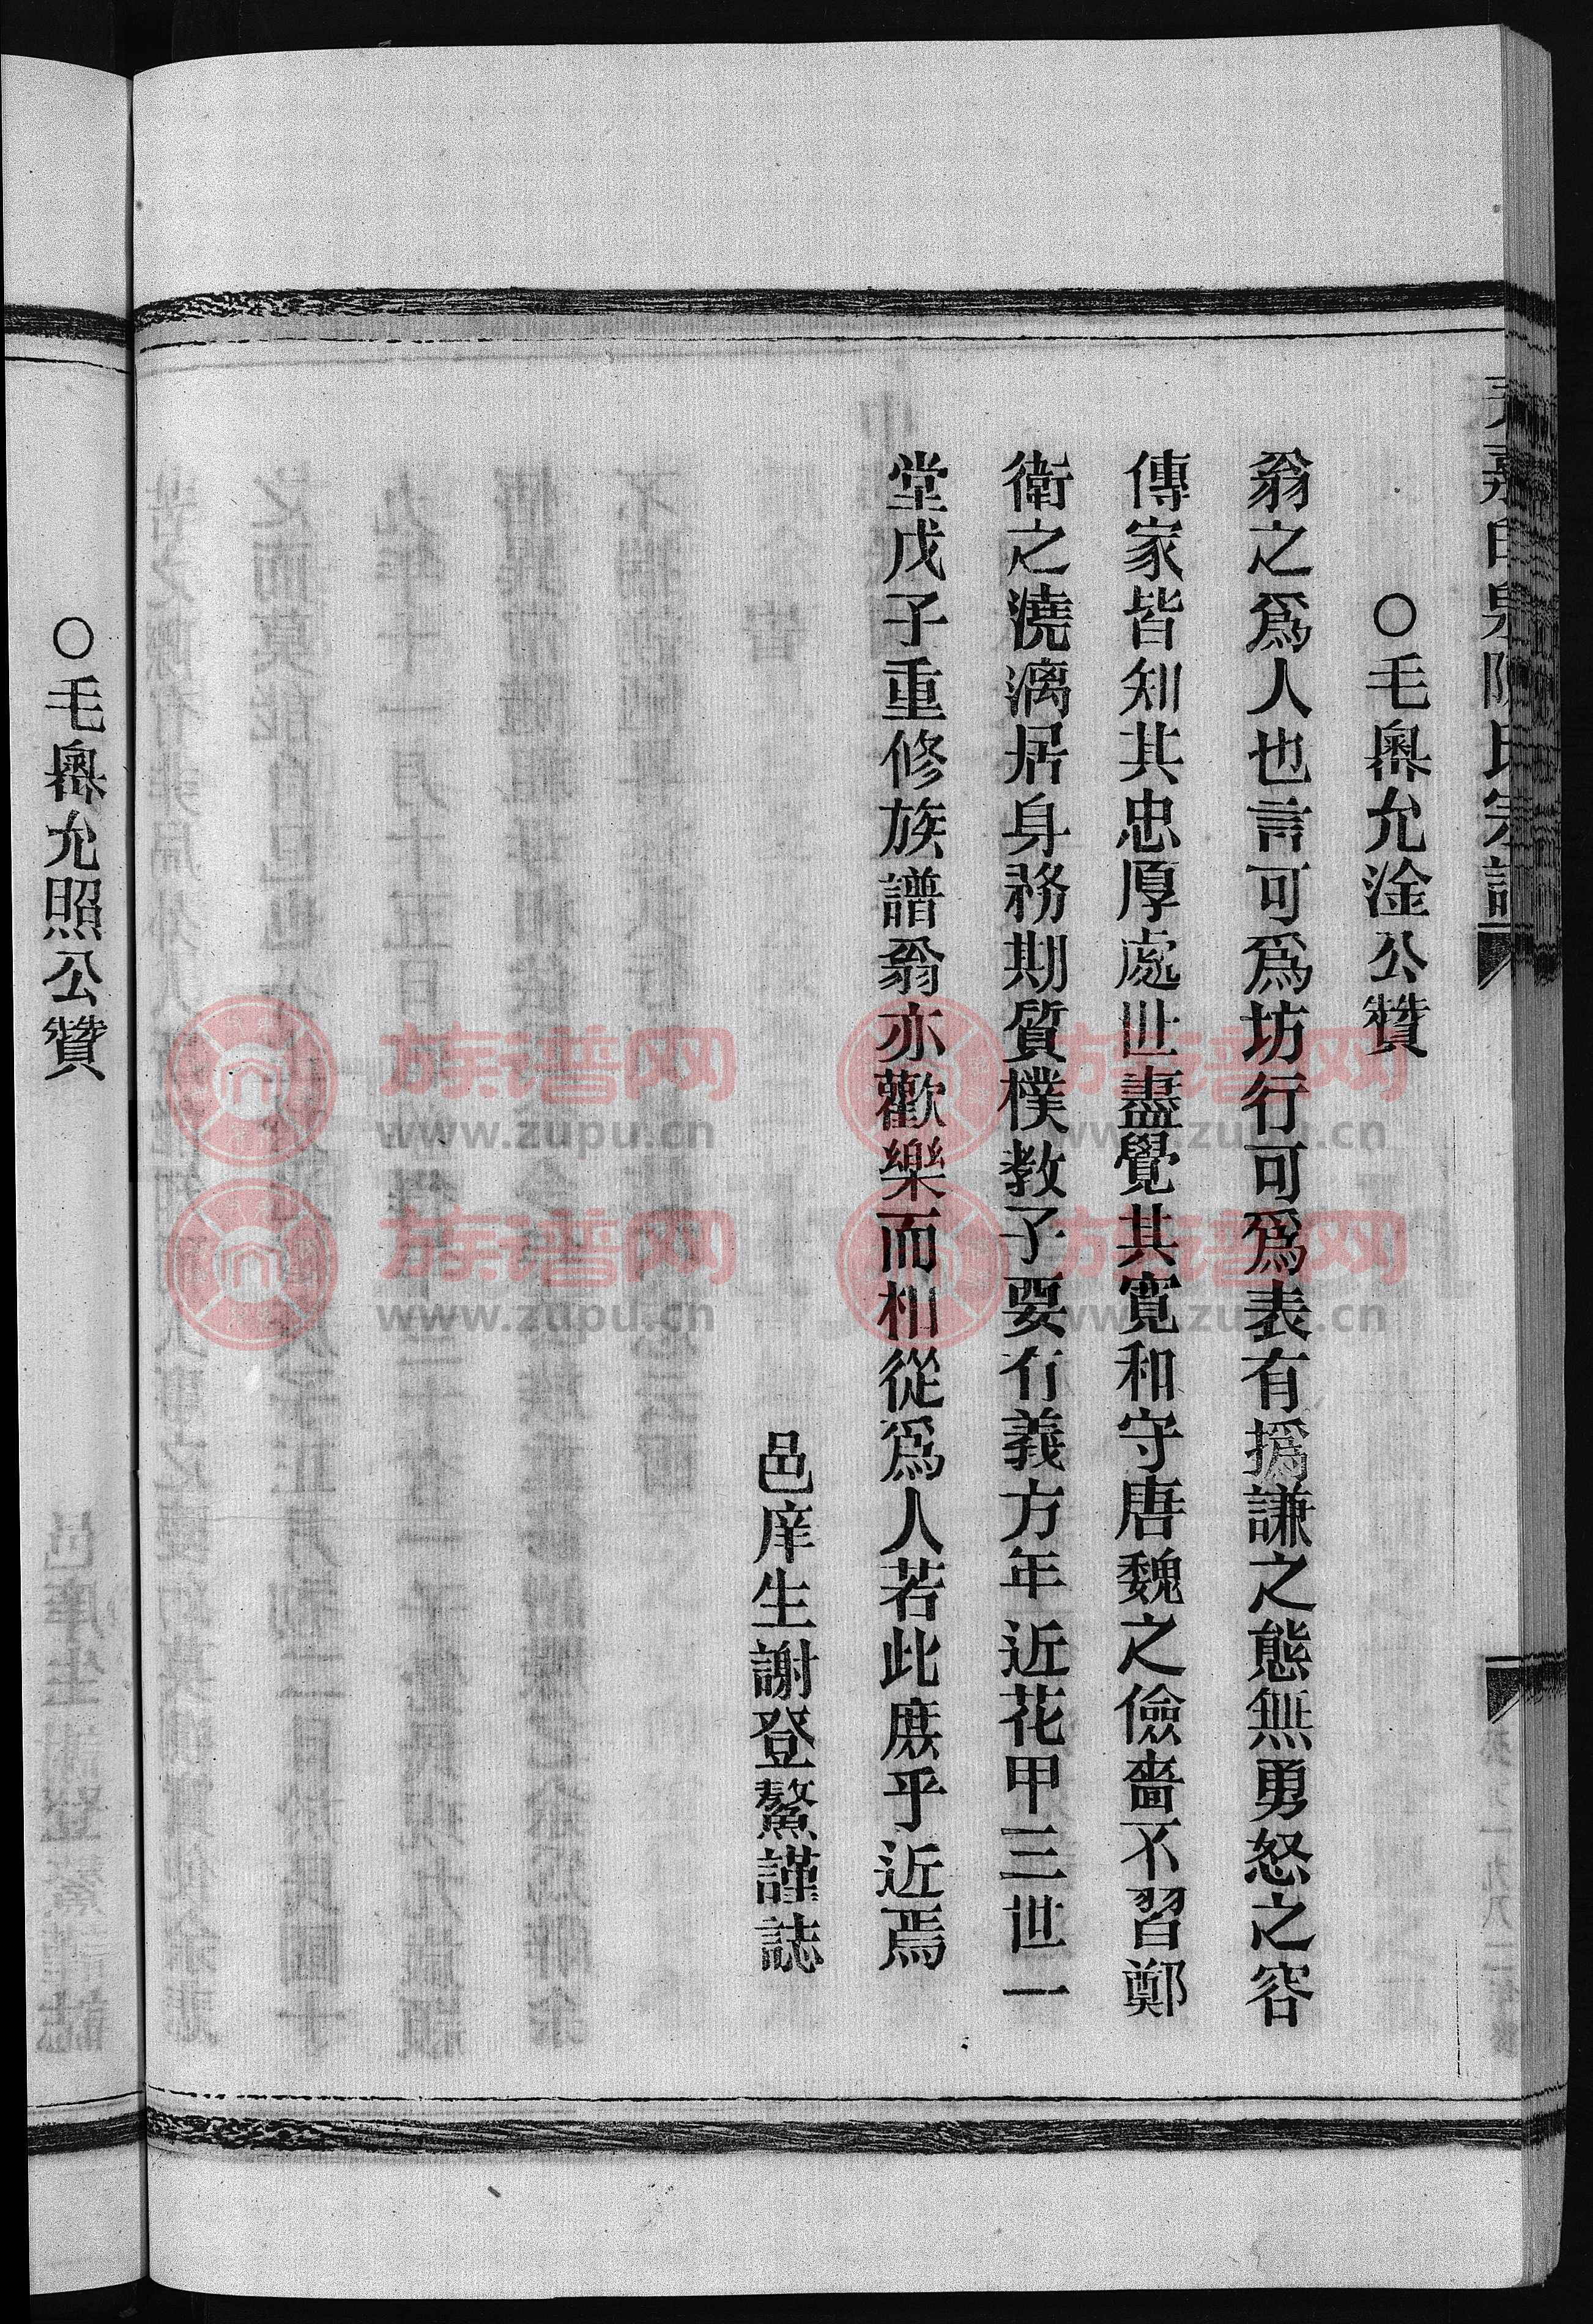 ○毛輿允淦公贊
翁之爲人也言可爲坊行可爲表有撝謙之態無勇怒之容
傳家皆知其忠厚處世盡覺其寬和守唐魏之儉嗇不習鄭
衛之澆漓居身務期質樸教子要有義方年近花甲三世一
堂戊子重修族譜翁亦歡樂而相從爲人若此庶乎近焉
邑庠生謝登鰲謹誌
○毛輿允照公贊
族谱网
www.zupu.cn
族谱网
www.zupu.cn
族谱网
www.zupu.cn
族谱网
www.zupu.cn